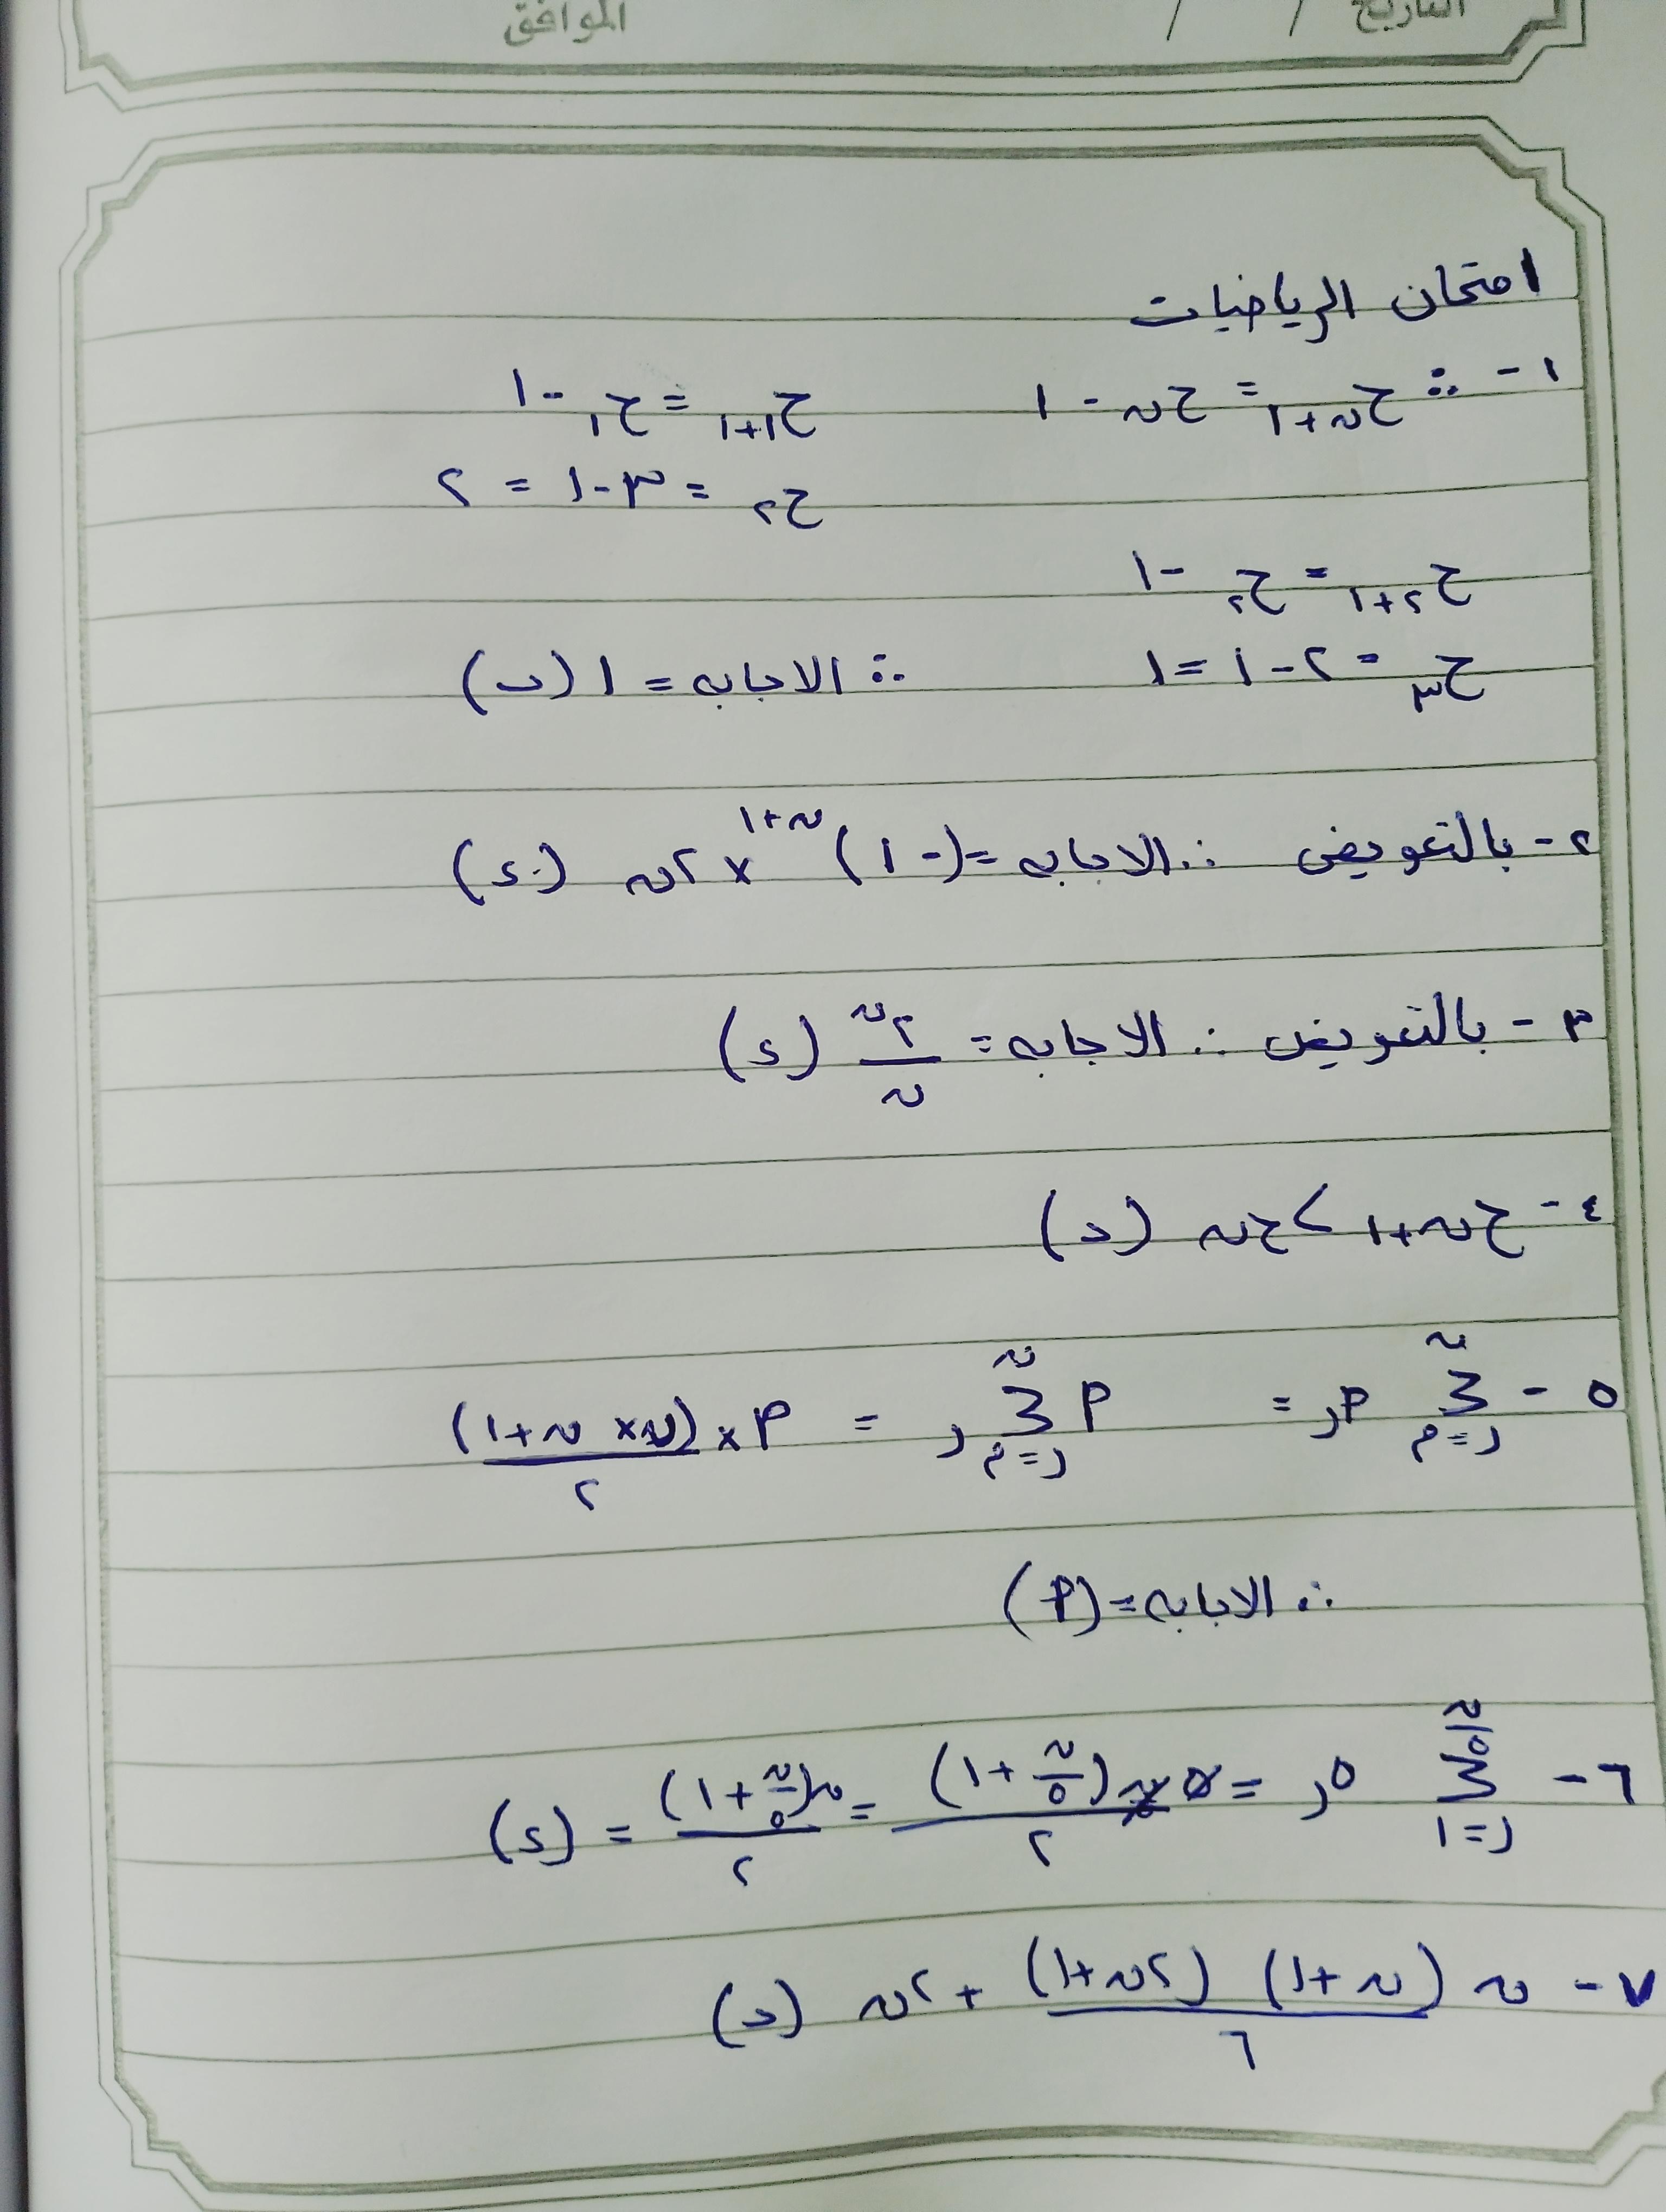 التاريخ / / الموافق
امتحان الرياضيات
١- ∵ ح ن+١ = ح ن - ١ ح ١+١ = ح ١ - ١
ح ٢ = ٣ - ١ = ٢
ح ٢+١ = ح ٢ - ١
ح ٣ = ٢ - ١ = ١ ∴ الاجابه = ١ (ب)
٢- بالتعويض ∴ الاجابه = (-١)^(ن+١) × ٢ن (د)
٣- بالتعويض ∴ الاجابه = ٢^ن / ن (د)
٤- ح ن+١ > ح ن (ح)
٥- ن Σ ر=م م ر = م ن Σ ر=م ر = م × (ن × ن+١) / ٢
∴ الاجابه = (م)
٦- ن/٥ Σ ر=١ ٥ر = ٥ ن/٥ (ن/٥ + ١) / ٢ = ن(ن/٥ + ١) / ٢ = (د)
٧- ن (ن+١) (٢ن+١) / ٦ + ٢ن (ح)